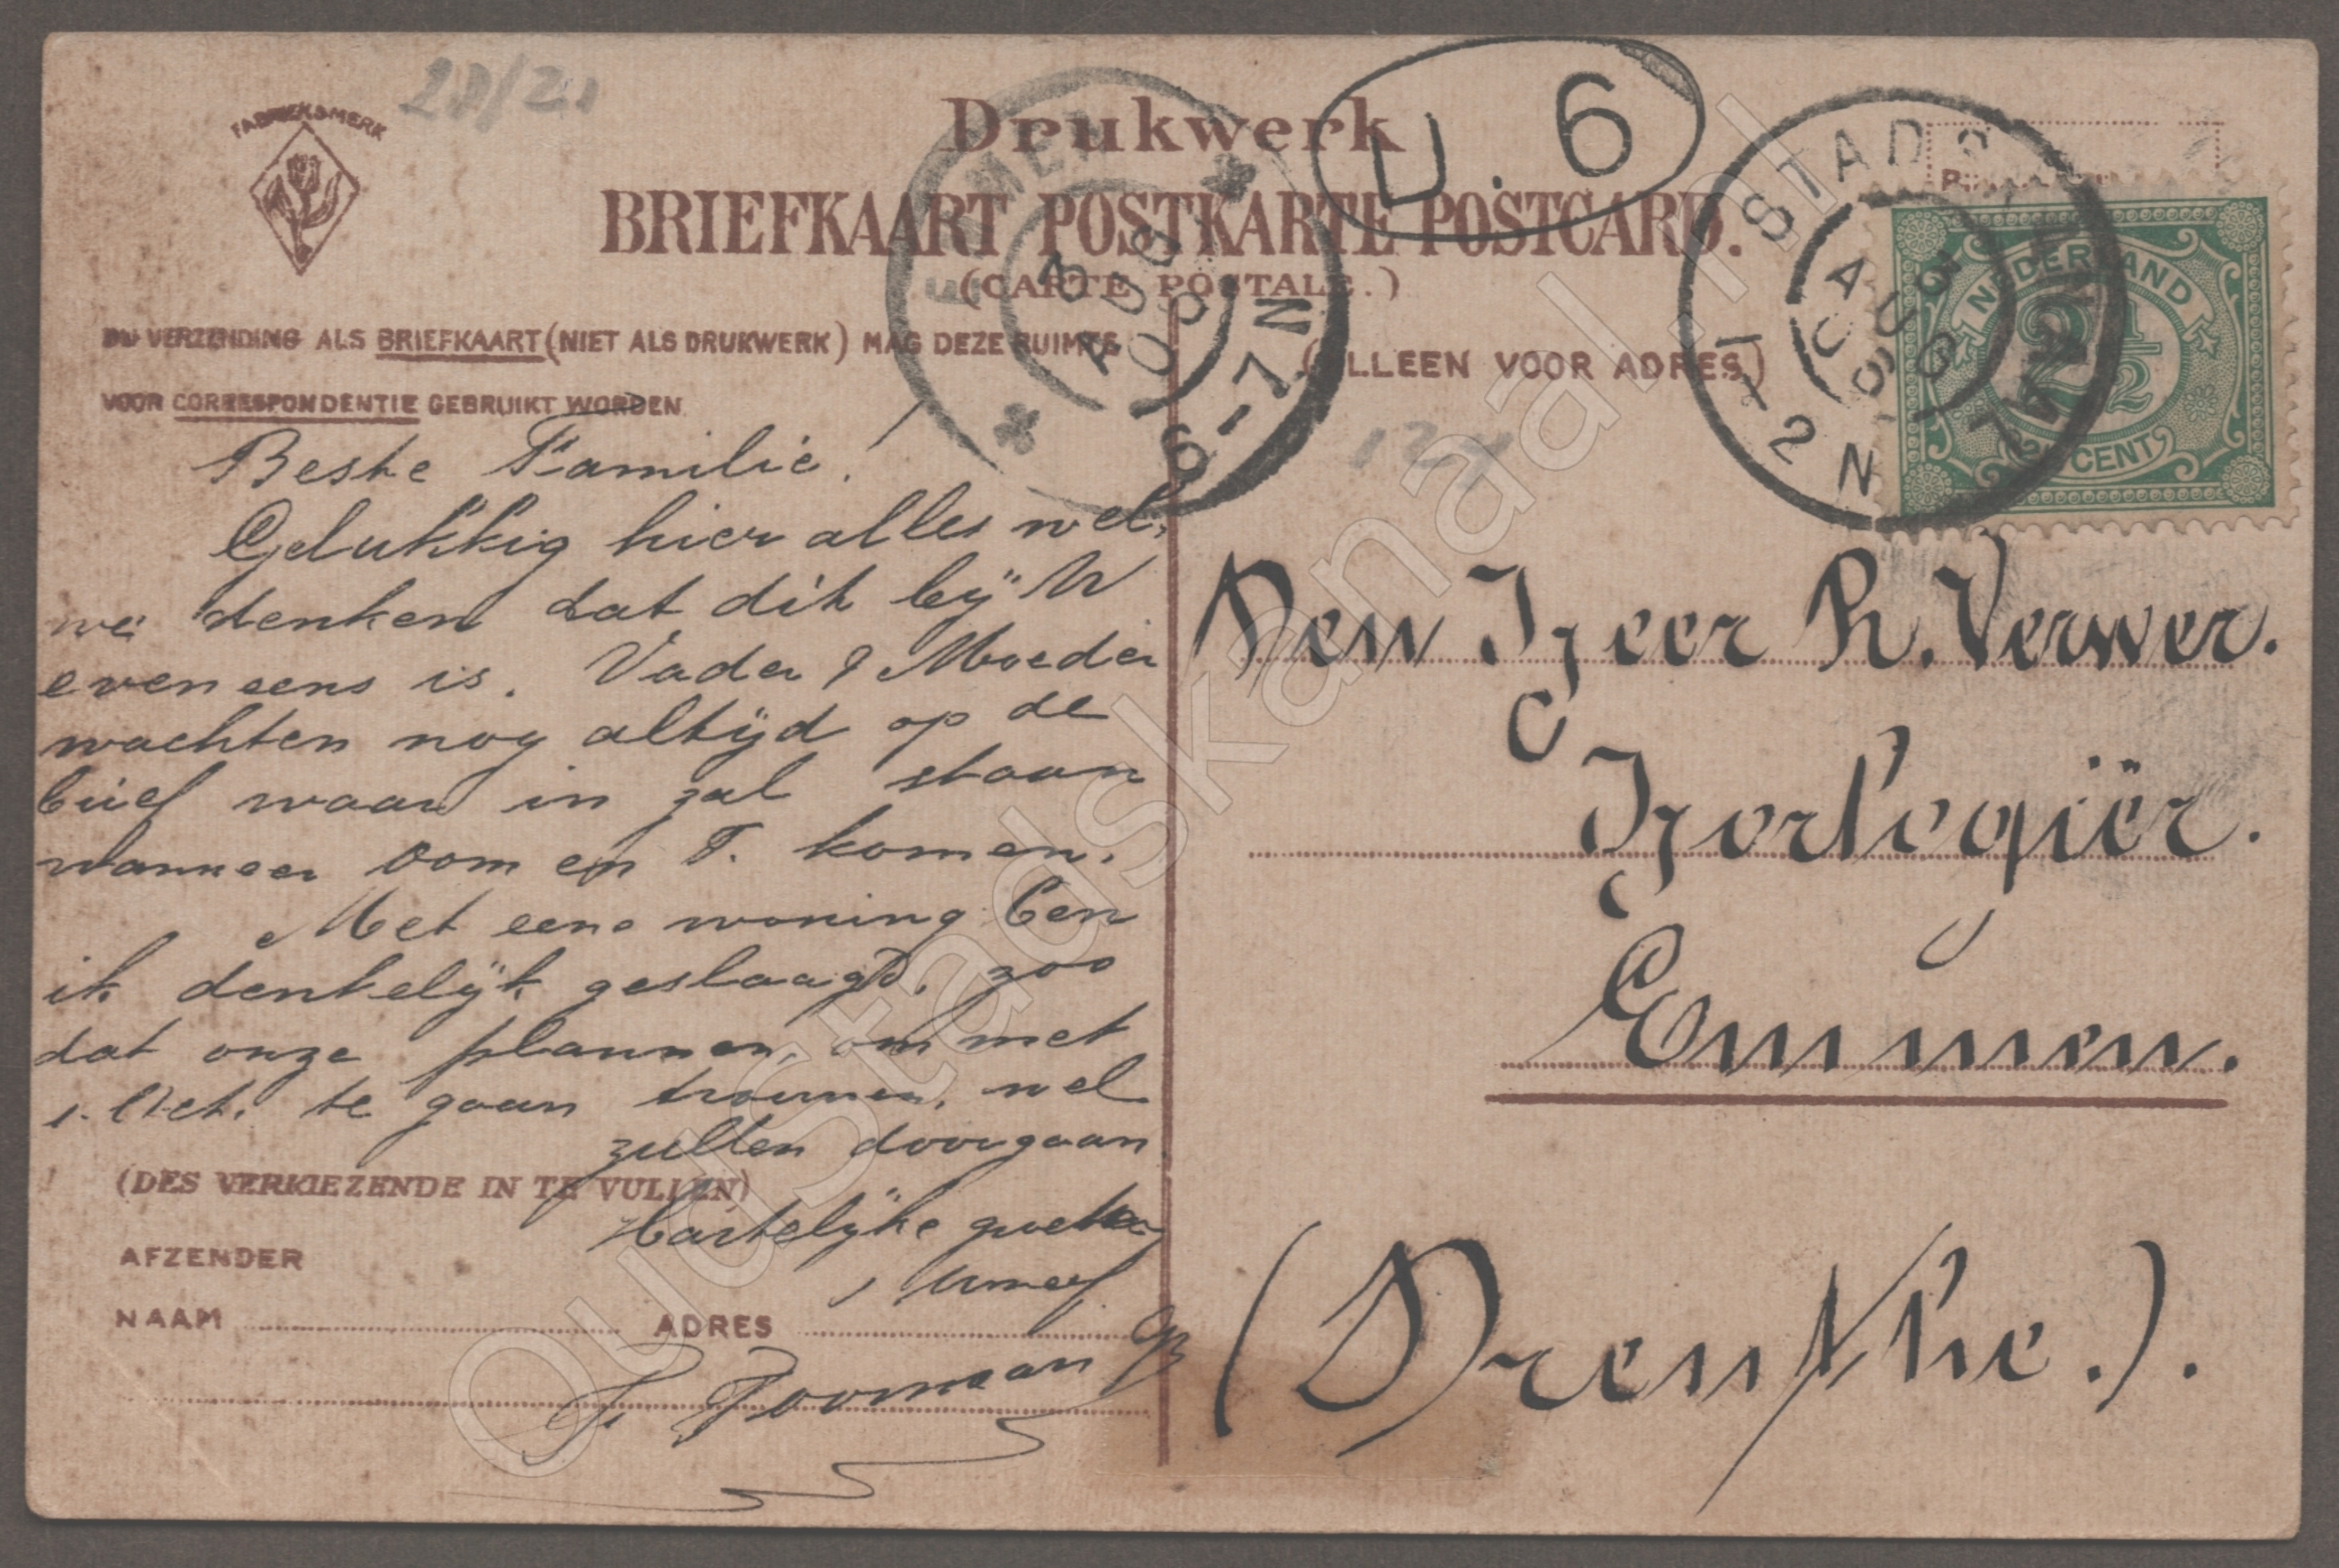 FABRIEKSMERK
Drukwerk
U. 6
BRIEFKAART POSTKARTE POSTCARD.
(CARTE POSTALE.)
BIJ VERZENDING ALS BRIEFKAART (NIET ALS DRUKWERK) MAG DEZE RUIMTE
VOOR CORRESPONDENTIE GEBRUIKT WORDEN
(ALLEEN VOOR ADRES)
EMMEN
3 AUG 08
6-7N
STADSKANAAL
3 AUG 08
1-2N
NEDERLAND
2½
CENT
Beste Familie!
Gelukkig hier alles wel,
we denken dat dit bij U
eveneens is. Vader & Moeder
wachten nog altijd op de
brief waar in zal staan
wanneer Oom en T. komen.
Met eene woning ben
ik denkelijk geslaagd, zoo
dat onze plannen, om met
1. Oct. te gaan trouwen, wel
zullen doorgaan
Hartelijke groeten
(DES VERKIEZENDE IN TE VULLEN)
AFZENDER
NAAM ADRES
Den Heer R. Verwer.
Horlogiër.
Emmen.
(Drenthe.).
OudStadskanaal.nl